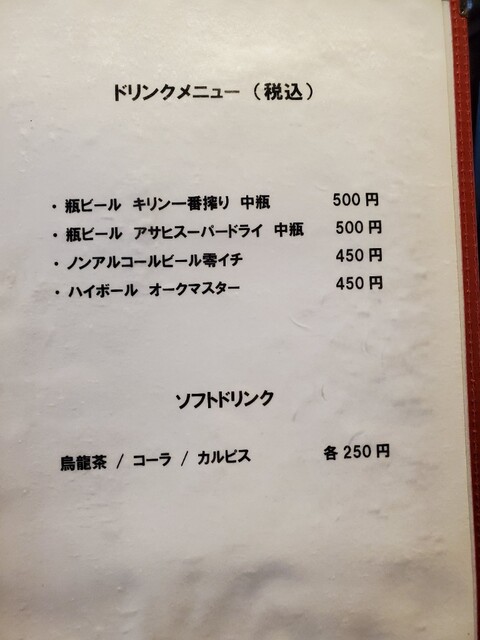 ドリンクメニュー（税込）
・瓶ビール キリン一番搾り 中瓶 500円
・瓶ビール アサヒスーパードライ 中瓶 500円
・ノンアルコールビール零イチ 450円
・ハイボール オークマスター 450円
ソフトドリンク
烏龍茶 / コーラ / カルピス 各250円